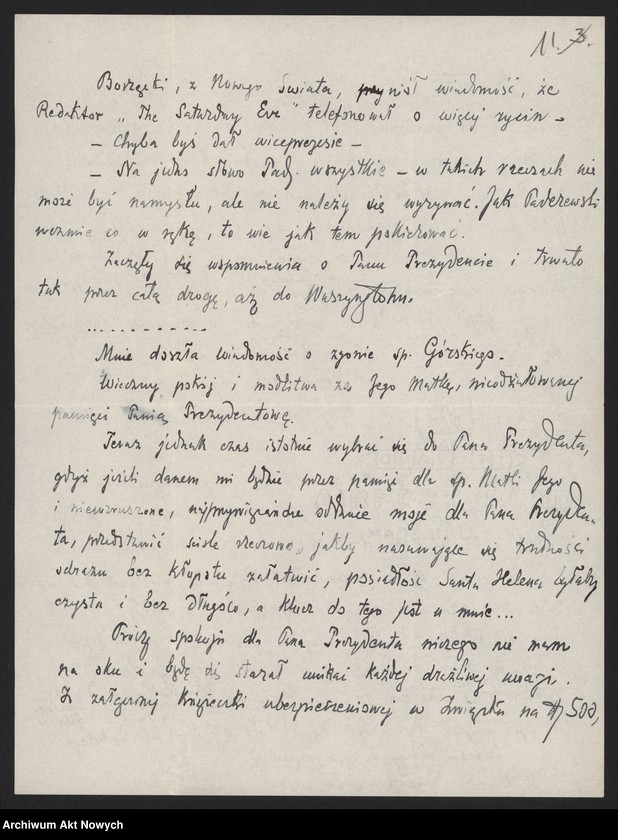 11. 3.
Borzęcki, z Nowego Świata, przyniósł wiadomość, że
Redaktor „The Saturday Eve" telefonował o więcej rycin –
– Chyba byś dał wiceprezesie –
– Na jedno słowo Pad. wszystkie – w takich rzeczach nie
może być namysłu, ale nie należy się wyrywać. Jak Paderewski
weźmie co w rękę, to wie jak tem pokierować.
Zaczęły się wspomnienia o Panu Prezydencie i trwało
tak przez całą drogę, aż do Waszyngtonu.
............
Mnie doszła wiadomość o zgonie śp. Górskiego.
Wieczny pokój i modlitwa za Jego Matkę, nieodżałowanej
pamięci Panią Prezydentową.
Teraz jednak czas istotnie wybrać się do Pana Prezydenta,
gdyż jeśli danem mi będzie przez pamięć dla śp. Matki Jego
i niewzruszone, oddanie moje dla Pana Prezyden-
ta, przedstawić ściśle rzeczowo, jakby nasuwające się trudności
odrazu bez kłopotu załatwić, posiadłość Santa Helena byłaby
czysta i bez długów, a klucz do tego jest u mnie...
Prócz spokoju dla Pana Prezydenta niczego nie mam
na oku i będę się starał unikać każdej drażliwej uwagi.
Z załączonej książeczki ubezpieczeniowej w Związku na $ 500,
Archiwum Akt Nowych